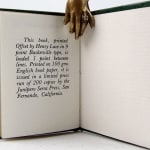 This book, printed
Offset by Henry Lam in 9
point Baskerville type, is
leaded 1 point between
lines. Printed on 100 gsm
English book paper, it is
issued in a limited press
run of 200 copies by the
Junipero Serra Press, San
Fernando, California.